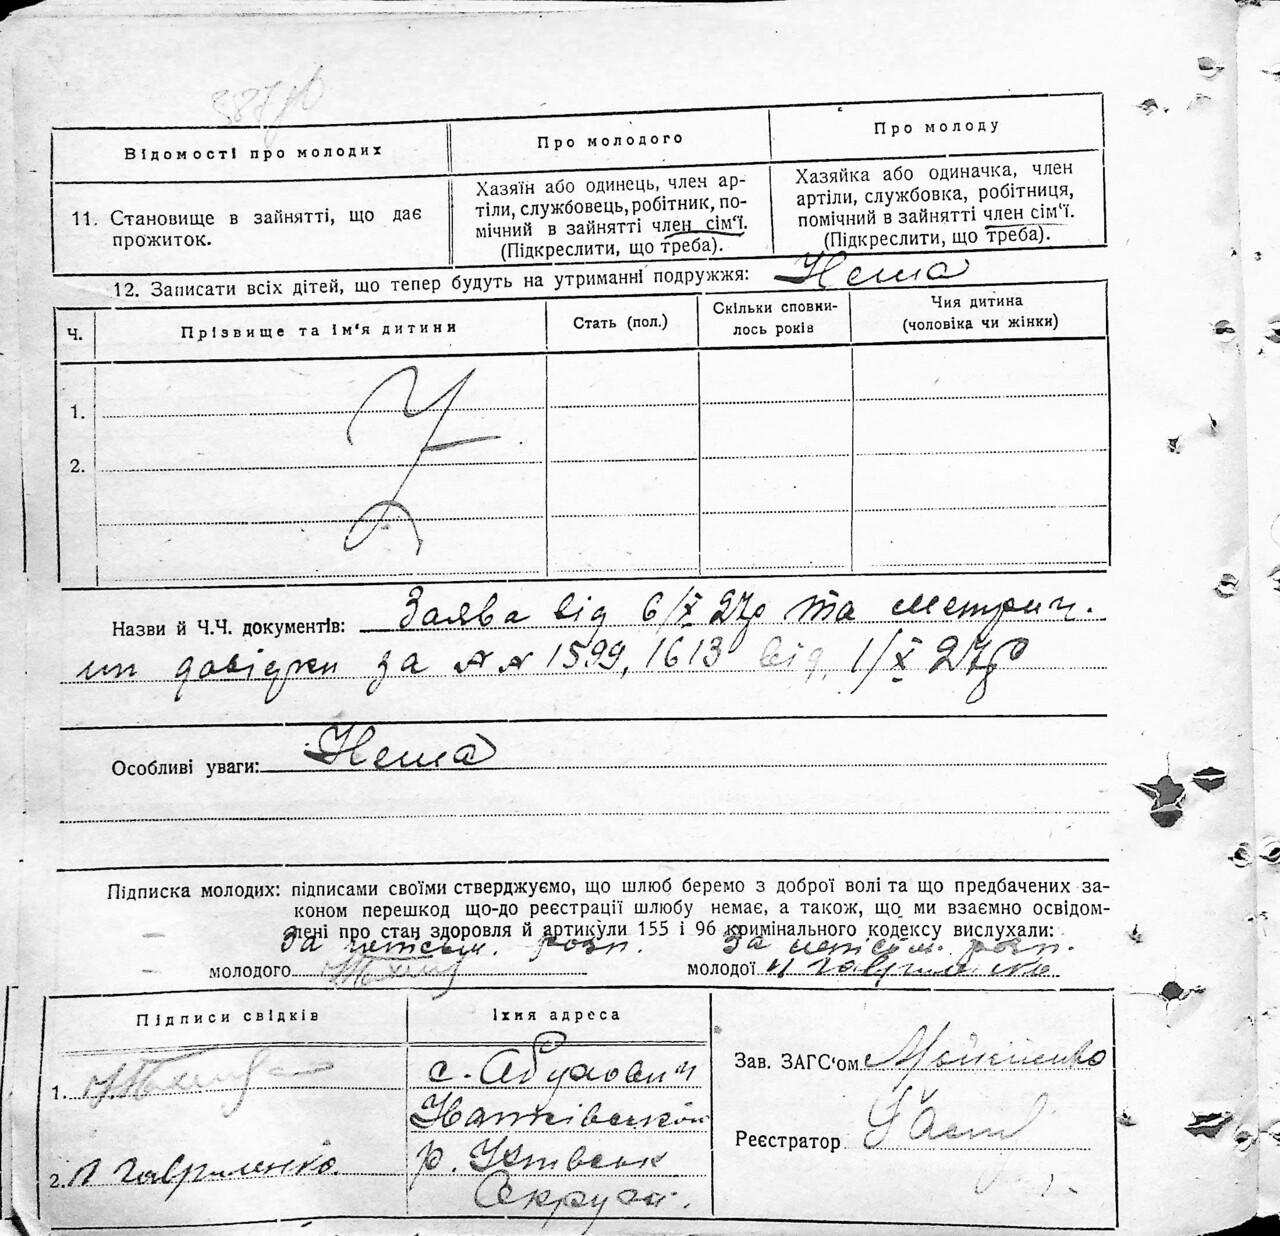 Відомості про молодих
Про молодого
Про молоду
11. Становище в зайнятті, що дає
прожиток.
Хазяїн або одинець, член ар-
тіли, службовець, робітник, по-
мічний в зайнятті член сім'ї.
(Підкреслити, що треба).
Хазяйка або одиначка, член
артіли, службовка, робітниця,
помічний в зайнятті член сім'ї.
(Підкреслити, що треба).
12. Записати всіх дітей, що тепер будуть на утриманні подружжя: Нема
Ч.
Прізвище та ім'я дитини
Стать (пол.)
Скільки сповни-
лось років
Чия дитина
(чоловіка чи жінки)
1.
2.
Назви й Ч.Ч. документів: Заява від 6/X 27р та метрич.
ни довідки за №№ 1599, 1613 від 1/X 27р
Особливі уваги: Нема
Підписка молодих: підписами своїми стверджуємо, що шлюб беремо з доброї волі та що предбачених за-
коном перешкод що-до реєстрації шлюбу немає, а також, що ми взаємно освідом-
лені про стан здоровля й артикули 155 і 96 кримінального кодексу вислухали:
За розп. За розп.
молодого
молодої Гавриленко
Підписи свідків
Їхня адреса
1.
с.
2. Гавриленко
р.
Округи.
Зав. ЗАГС'ом Мойсієнко
Реєстратор